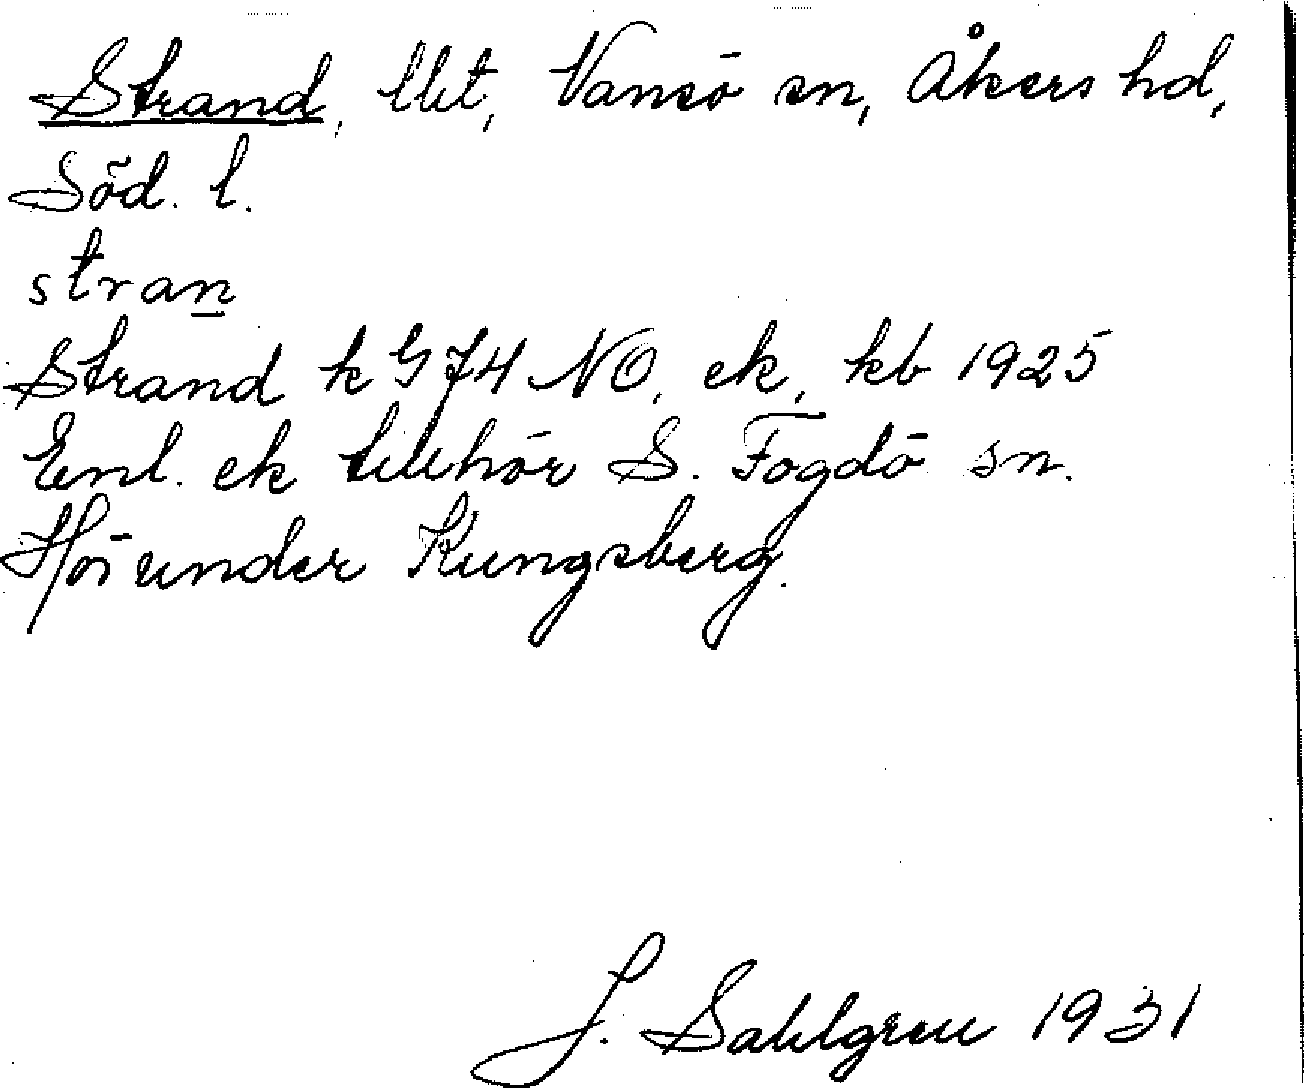 Strand, lht, Vansö sn, Åkers hd,
Söd. l.
stran
Strand k G 74 NO, ek, kb 1925
Enl. ek tillhör S. Fogdö sn.
Hör under Kungsberg.
J. Sahlgren 1931